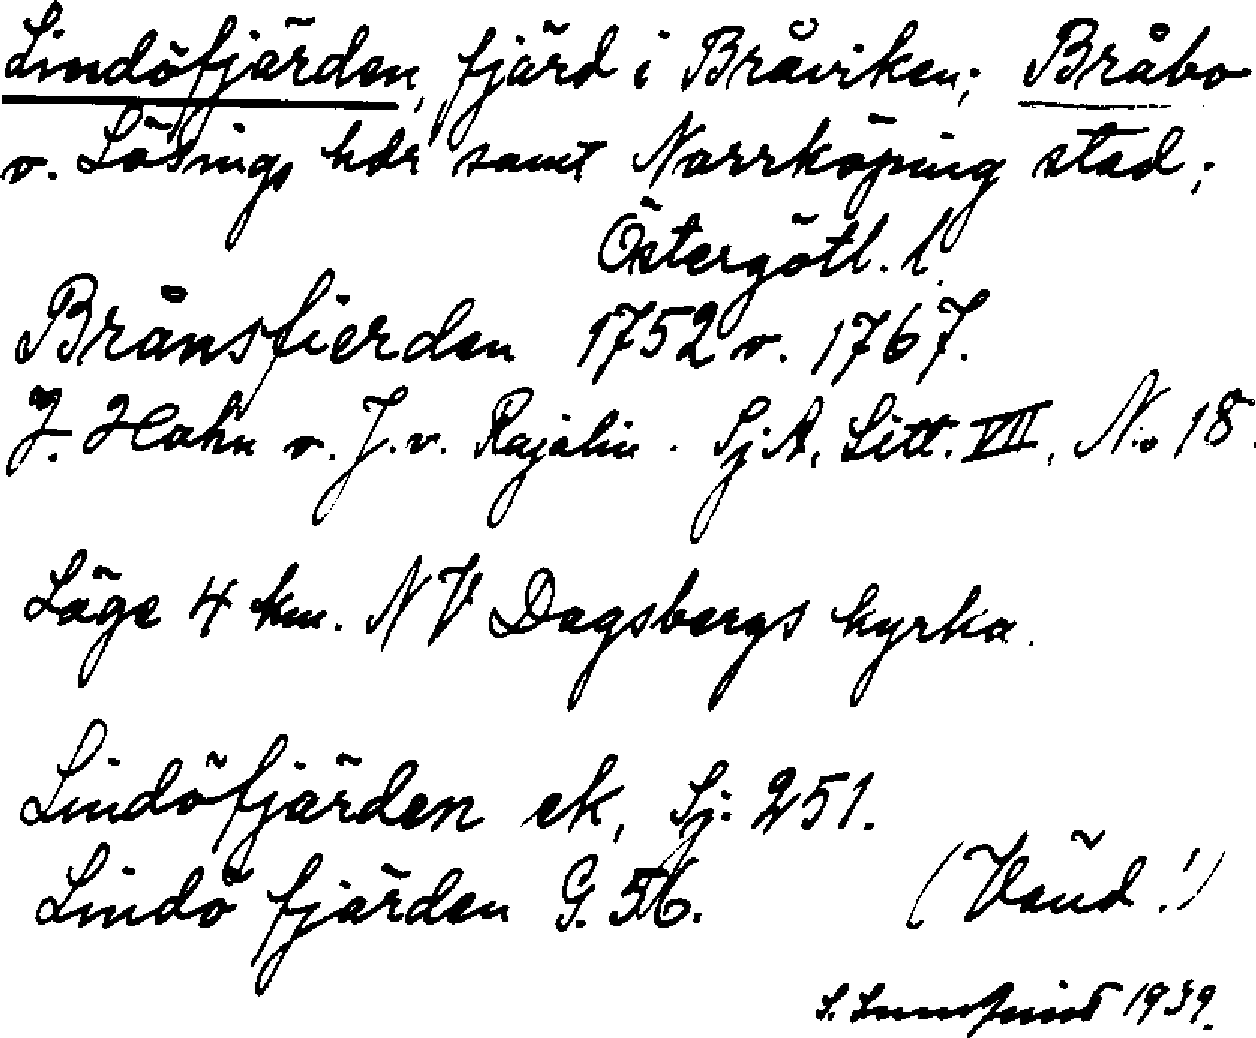 Lindöfjärden, fjärd i Bråviken; Bråbo
o. Lösings hdr samt Norrköping stad;
Östergötl. l.
Brånsfierden 1752 o. 1767.
J. Hahn o. J. v. Rajalin. Sj.A. Litt. VII, No 18.
Läge 4 km. NV Dagsbergs kyrka.
Lindöfjärden ek, Sj. 251.
Lindö fjärden G. 56.
(Vänd!)
S. 1939.